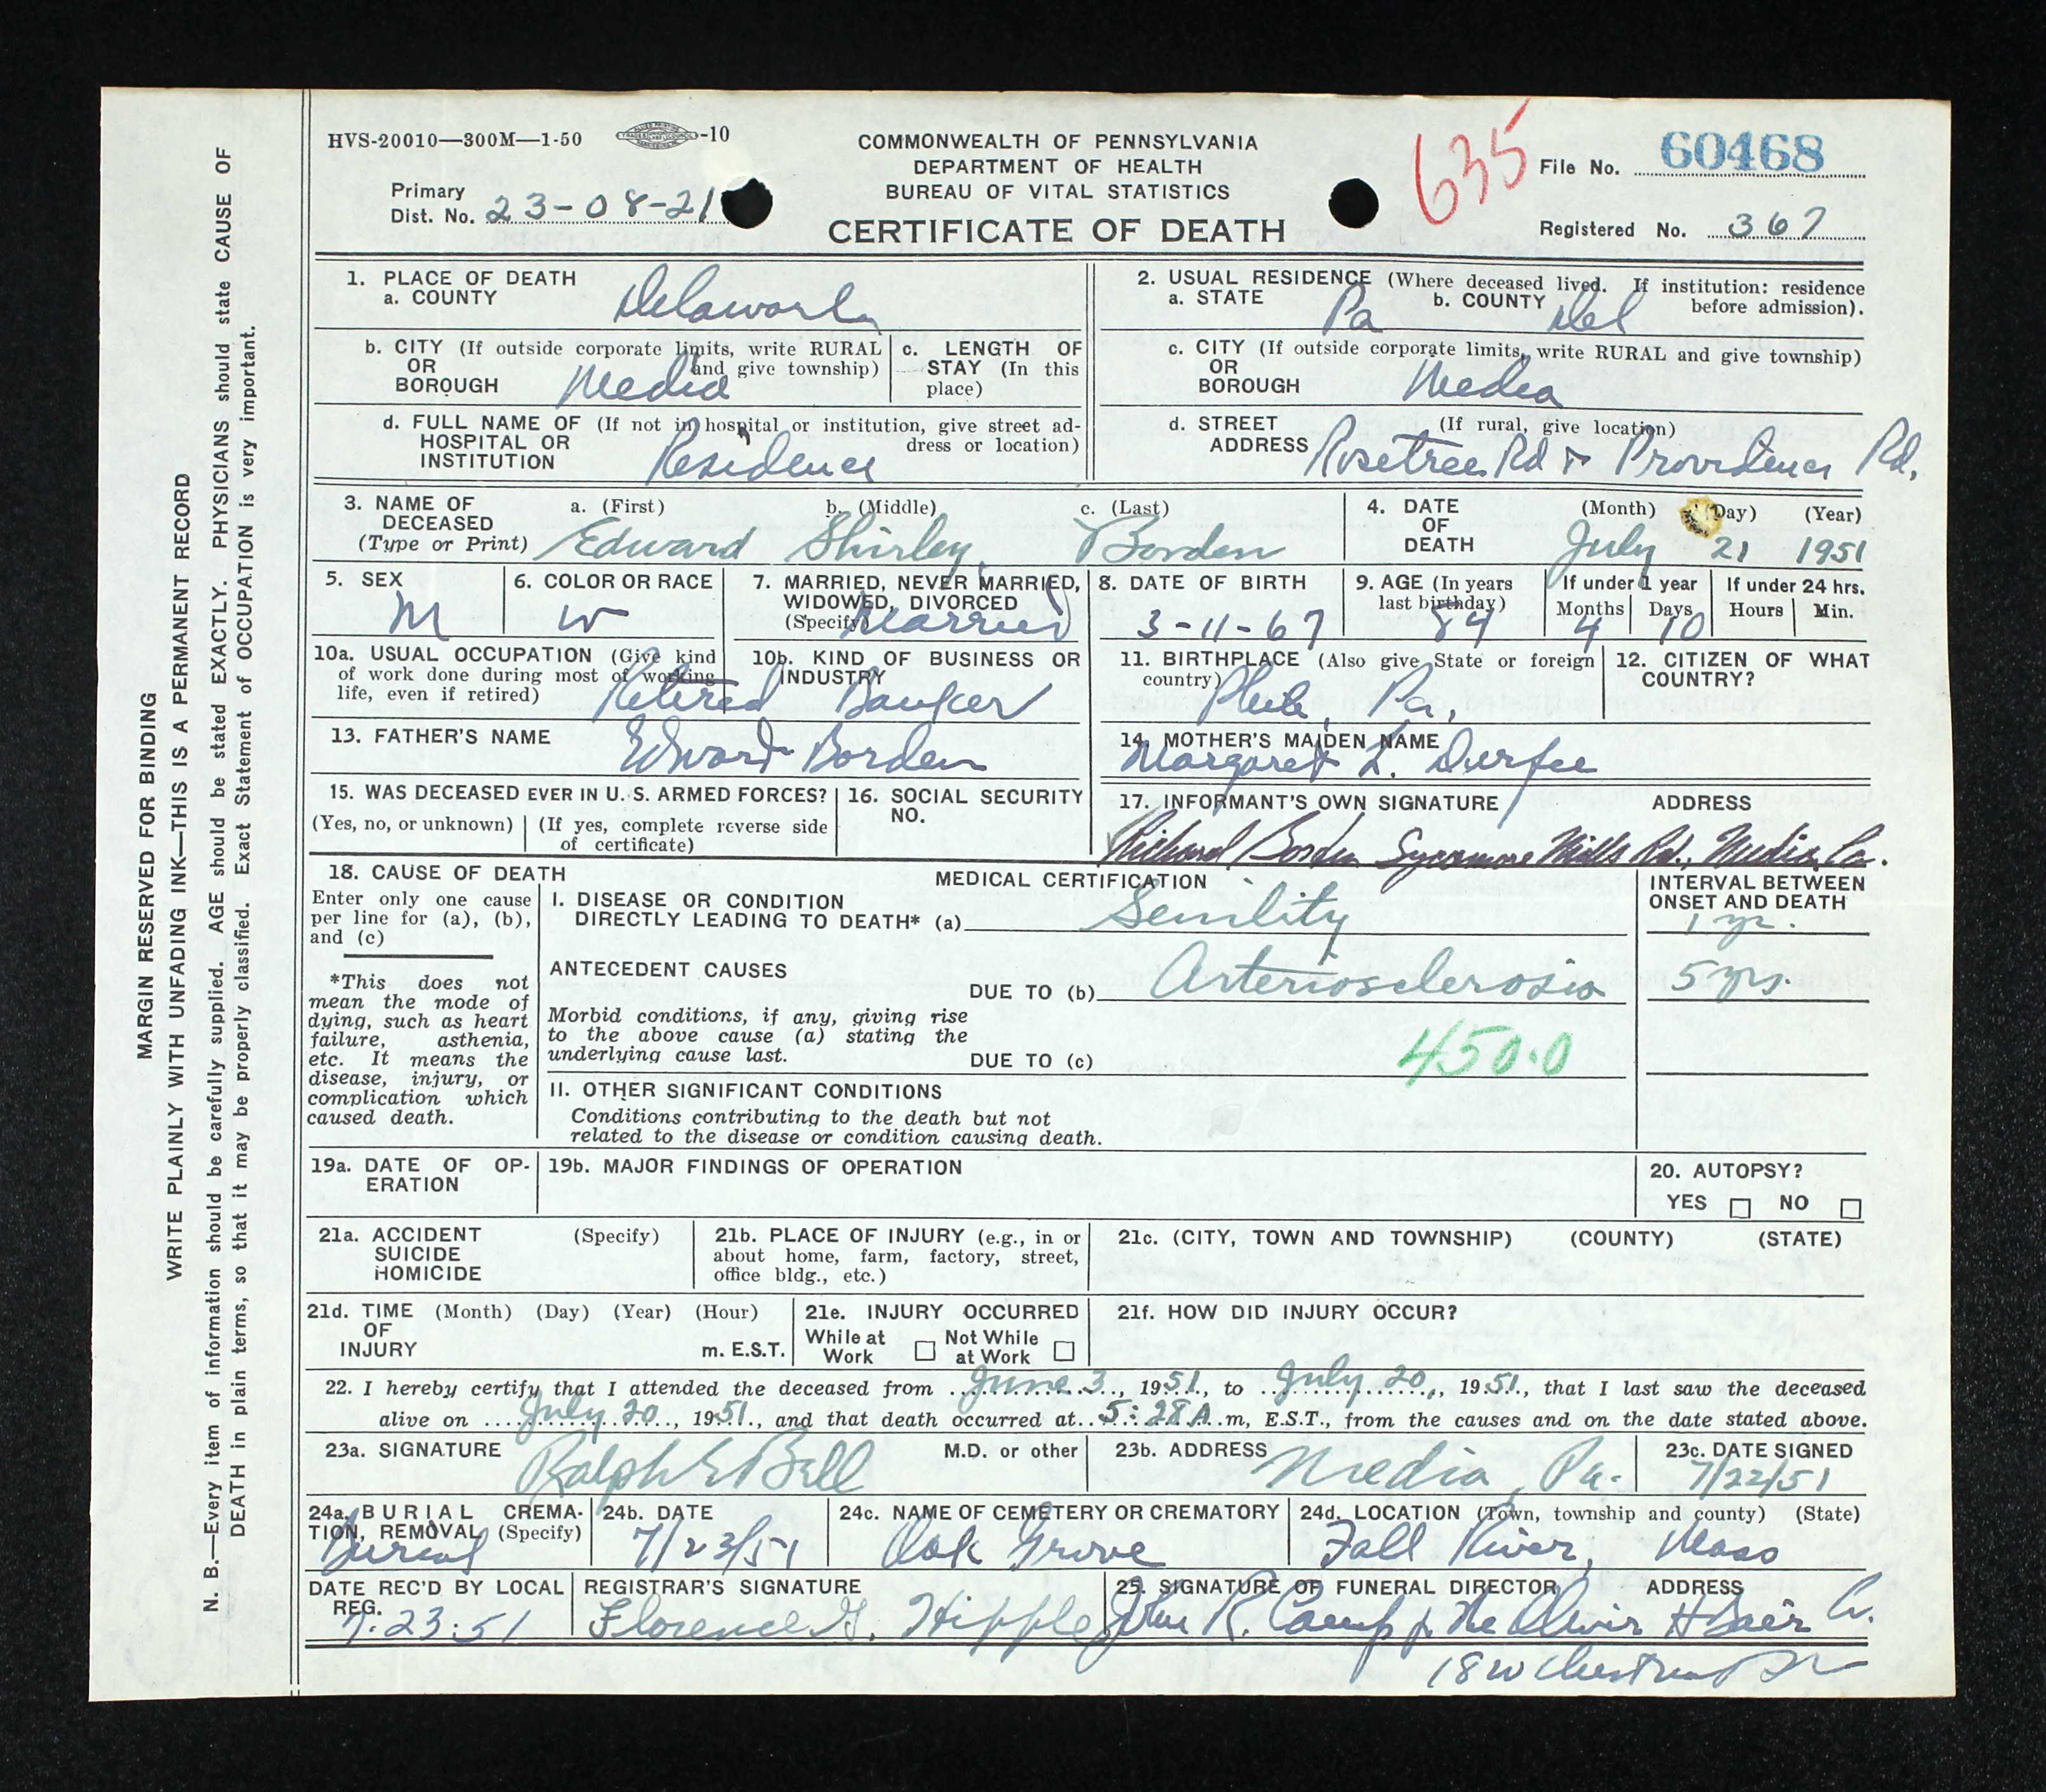 HVS-20010—300M—1-50 -10
COMMONWEALTH OF PENNSYLVANIA
DEPARTMENT OF HEALTH
BUREAU OF VITAL STATISTICS
CERTIFICATE OF DEATH
Primary
Dist. No. 23-08-21
635
File No. 60468
Registered No. 367
1. PLACE OF DEATH
a. COUNTY Delaware
2. USUAL RESIDENCE (Where deceased lived. If institution: residence
a. STATE Pa b. COUNTY Del before admission).
b. CITY (If outside corporate limits, write RURAL
OR and give township)
BOROUGH Media
c. LENGTH OF
STAY (In this
place)
c. CITY (If outside corporate limits, write RURAL and give township)
OR
BOROUGH Media
d. FULL NAME OF (If not in hospital or institution, give street ad-
HOSPITAL OR dress or location)
INSTITUTION Residence
d. STREET (If rural, give location)
ADDRESS Rosetree Rd & Providence Rd.
3. NAME OF a. (First) b. (Middle) c. (Last)
DECEASED
(Type or Print) Edward Shirley Borden
4. DATE (Month) (Day) (Year)
OF
DEATH July 21 1951
5. SEX
M
6. COLOR OR RACE
W
7. MARRIED, NEVER MARRIED,
WIDOWED, DIVORCED
(Specify) Married
8. DATE OF BIRTH
3-11-67
9. AGE (In years
last birthday)
84
If under 1 year
Months Days
4 10
If under 24 hrs.
Hours Min.
10a. USUAL OCCUPATION (Give kind
of work done during most of working
life, even if retired) Retired
10b. KIND OF BUSINESS OR
INDUSTRY
Banker
11. BIRTHPLACE (Also give State or foreign
country) Phila, Pa,
12. CITIZEN OF WHAT
COUNTRY?
13. FATHER'S NAME
Edward Borden
14. MOTHER'S MAIDEN NAME
Margaret L. Durfee
15. WAS DECEASED EVER IN U. S. ARMED FORCES?
(Yes, no, or unknown) (If yes, complete reverse side
of certificate)
16. SOCIAL SECURITY
NO.
17. INFORMANT'S OWN SIGNATURE ADDRESS
Richard Borden Sycamore Mills Rd., Media, Pa.
18. CAUSE OF DEATH
Enter only one cause
per line for (a), (b),
and (c)
*This does not
mean the mode of
dying, such as heart
failure, asthenia,
etc. It means the
disease, injury, or
complication which
caused death.
MEDICAL CERTIFICATION
I. DISEASE OR CONDITION
DIRECTLY LEADING TO DEATH* (a) Senility
INTERVAL BETWEEN
ONSET AND DEATH
1 yr.
ANTECEDENT CAUSES
DUE TO (b) Arteriosclerosis 5 yrs.
Morbid conditions, if any, giving rise
to the above cause (a) stating the
underlying cause last.
DUE TO (c) 450.0
II. OTHER SIGNIFICANT CONDITIONS
Conditions contributing to the death but not
related to the disease or condition causing death.
19a. DATE OF OP-
ERATION
19b. MAJOR FINDINGS OF OPERATION
20. AUTOPSY?
YES NO
21a. ACCIDENT (Specify)
SUICIDE
HOMICIDE
21b. PLACE OF INJURY (e.g., in or
about home, farm, factory, street,
office bldg., etc.)
21c. (CITY, TOWN AND TOWNSHIP) (COUNTY) (STATE)
21d. TIME (Month) (Day) (Year) (Hour)
OF
INJURY m. E.S.T.
21e. INJURY OCCURRED
While at Not While
Work at Work
21f. HOW DID INJURY OCCUR?
22. I hereby certify that I attended the deceased from June 3, 1951, to July 20, 1951, that I last saw the deceased
alive on July 20, 1951, and that death occurred at 5:28 A m, E.S.T., from the causes and on the date stated above.
23a. SIGNATURE M.D. or other
Ralph E Bell
23b. ADDRESS
Media, Pa.
23c. DATE SIGNED
7/22/51
24a. BURIAL CREMA-
TION, REMOVAL (Specify)
Burial
24b. DATE
7/23/51
24c. NAME OF CEMETERY OR CREMATORY
Oak Grove
24d. LOCATION (Town, township and county) (State)
Fall River, Mass
DATE REC'D BY LOCAL
REG.
7.23.51
REGISTRAR'S SIGNATURE
Florence G. Hipple
25. SIGNATURE OF FUNERAL DIRECTOR ADDRESS
John R. Camp The H Bair Co.
18 W Chestnut St
MARGIN RESERVED FOR BINDING
WRITE PLAINLY WITH UNFADING INK—THIS IS A PERMANENT RECORD
N. B.—Every item of information should be carefully supplied. AGE should be stated EXACTLY. PHYSICIANS should state CAUSE OF
DEATH in plain terms, so that it may be properly classified. Exact Statement of OCCUPATION is very important.